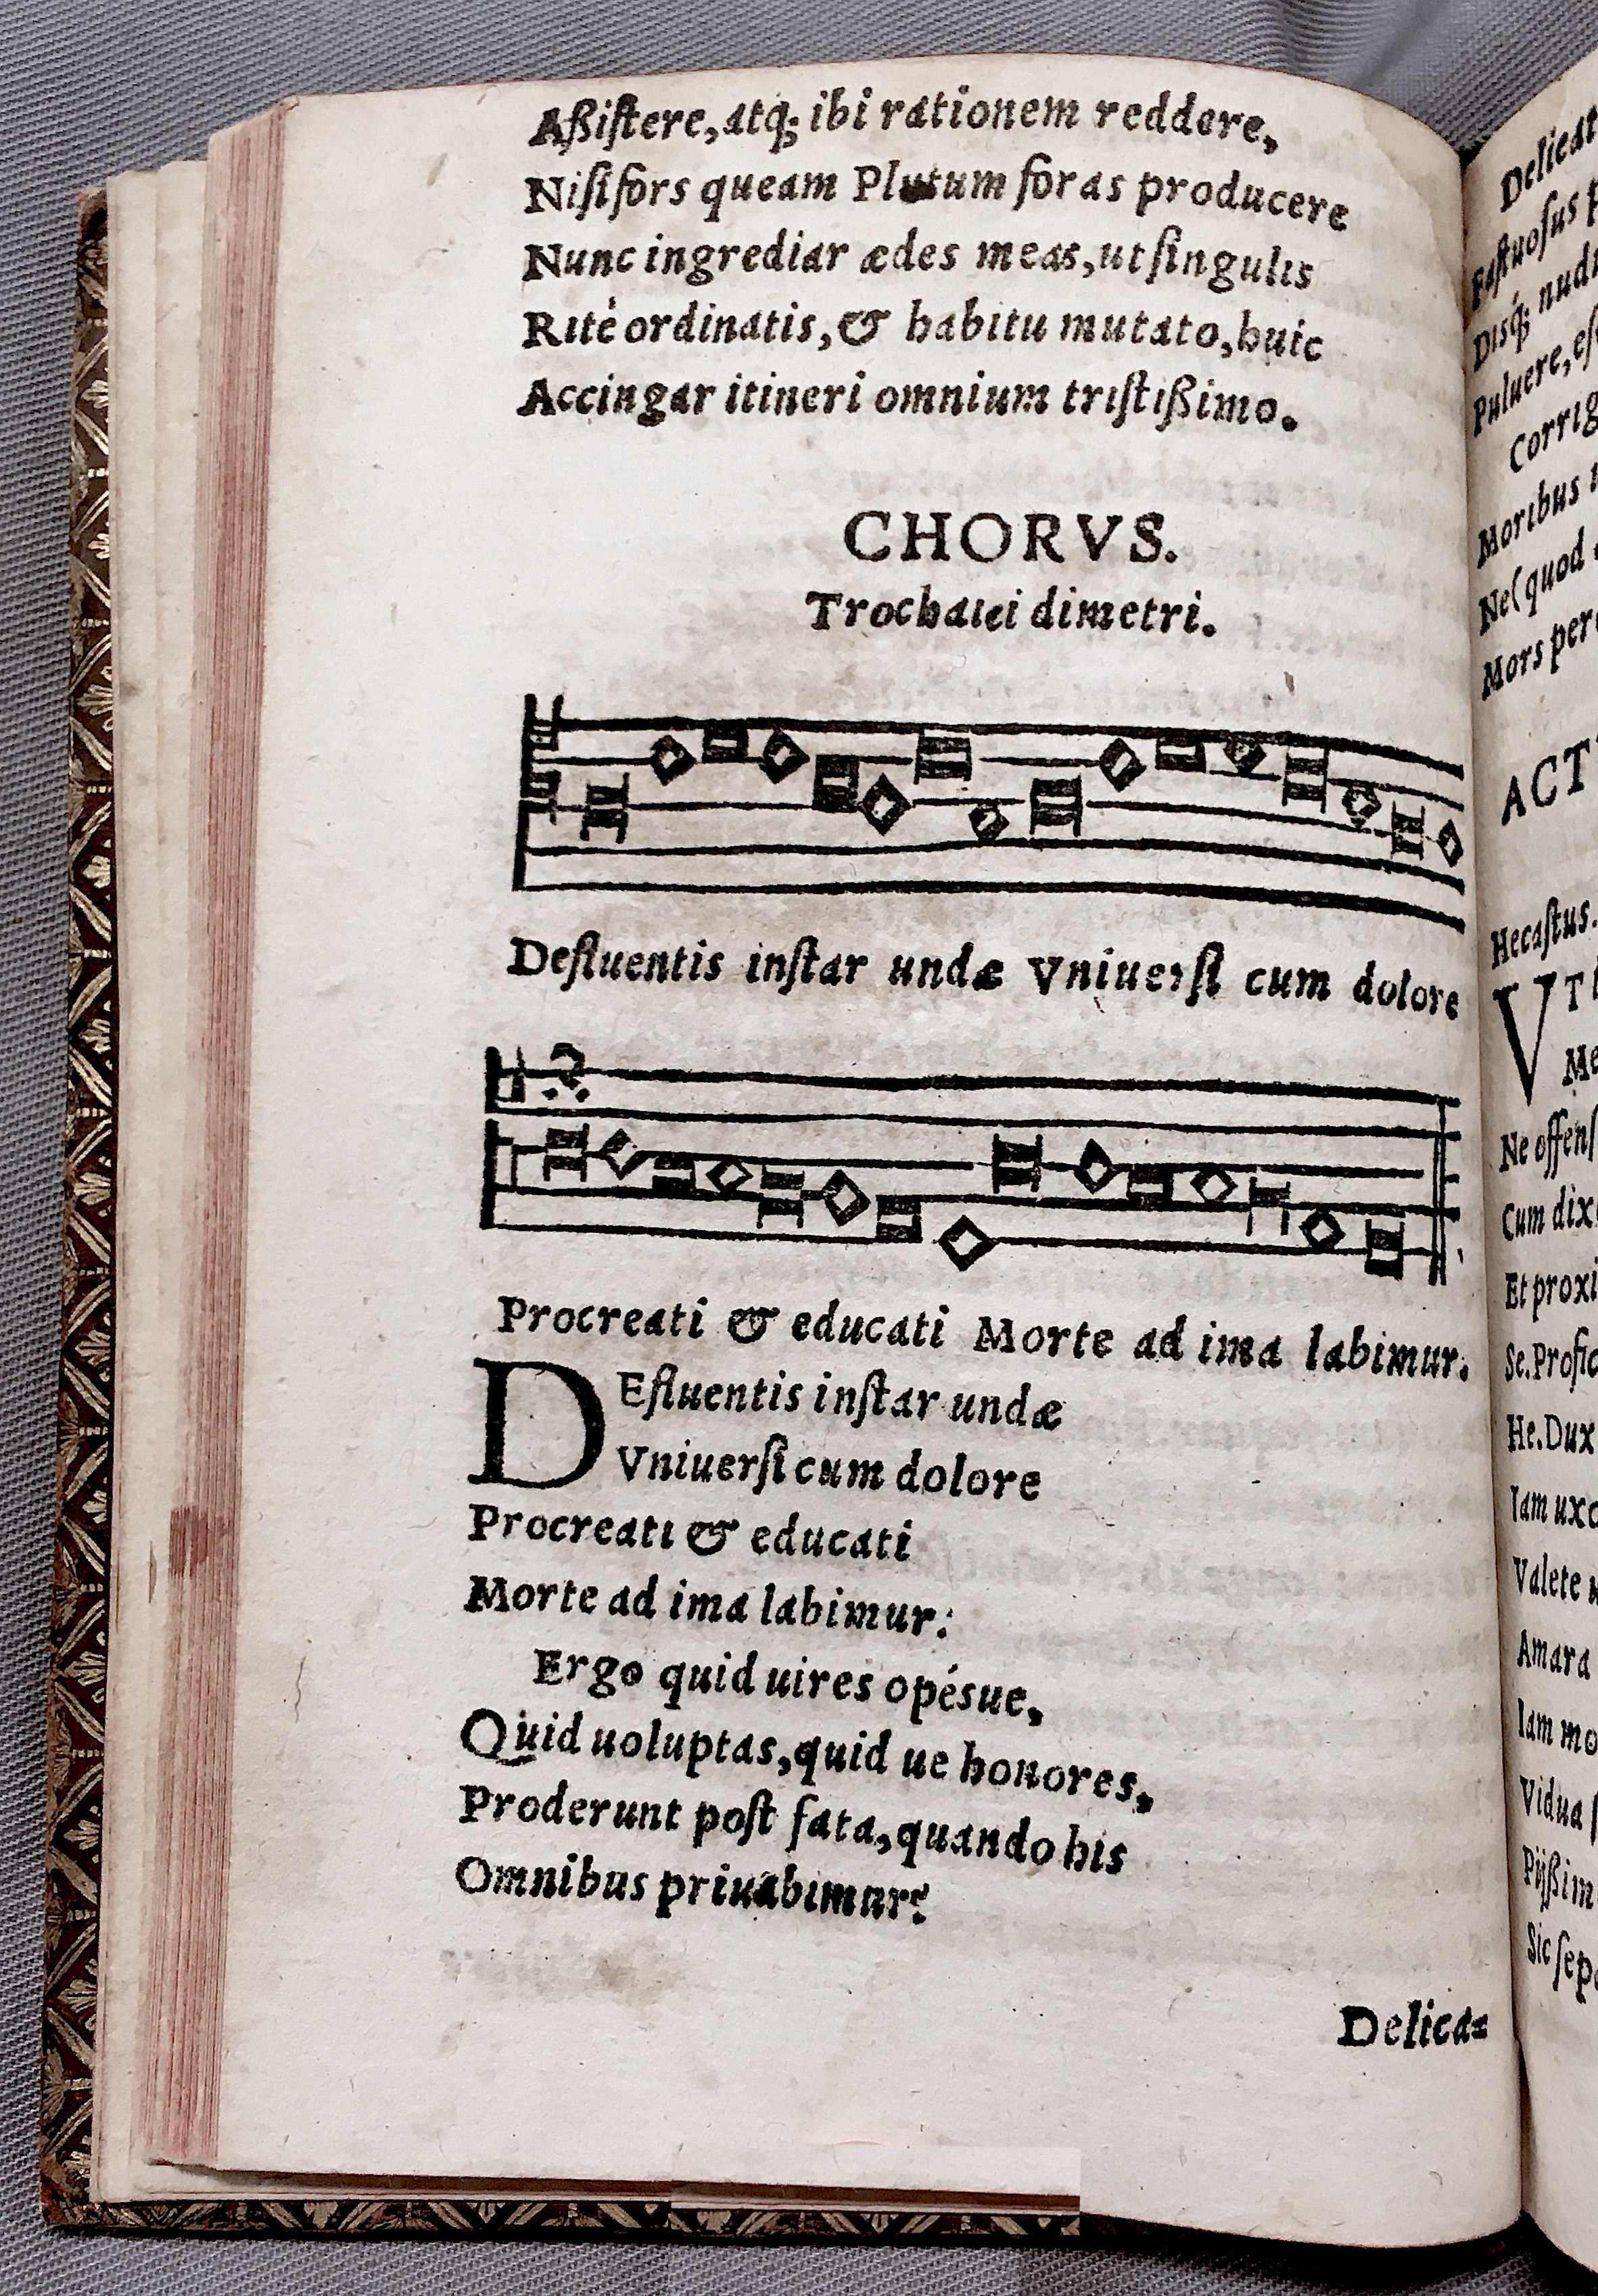 Aßiſtere, atq; ibi rationem reddere,
Niſi fors queam Plutum foras producere
Nunc ingrediar ædes meas, ut ſingulis
Ritè ordinatis, & habitu mutato, huic
Accingar itineri omnium triſtißimo.
CHORVS.
Trochaici dimetri.
Defluentis inſtar undæ Vniuerſi cum dolore
Procreati & educati Morte ad ima labimur.
DEfluentis inſtar undæ
Vniuerſi cum dolore
Procreati & educati
Morte ad ima labimur:
Ergo quid uires opésue,
Quid uoluptas, quid ue honores,
Proderunt poſt fata, quando his
Omnibus priuabimur?
Delica=
Delicat
Faſtuoſus
Diſq; nud
Puluere, eſ
Corrig
Moribus
Ne (quod
Mors per
ACT
Hecaſtus.
VT
Me
Ne offenſ
Cum dix
Et proxi
Se. Profic
He. Dux
Iam uxo
Valete
Amara
Iam mo
Vidua
Pijßim
Sic ſep